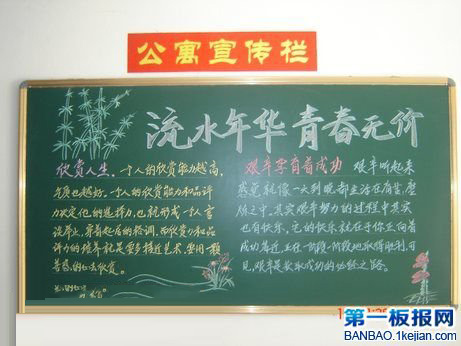 公寓宣传栏
流水年华 青春无价
欣赏人生，一个人的欣赏能力越高，
气质也越好。一个人的欣赏能力和品评
力决定他的选择力，也就形成一个人言
谈举止，穿着起居的格调，而欣赏力和品
评力的培养就是要多接近艺术，要用一颗
善感的心去欣赏。
艰辛孕育着成功 艰辛听起来
感觉就像一天到晚都生活在痛苦、磨
炼之中，其实艰辛努力的过程中其实
也有快乐，它的快乐就在于你正向着
成功靠近，正在一阶段一阶段地取得胜利，可
见，艰辛是获取成功的必经之路。
第一板报网
BANBAO.1kejian.com